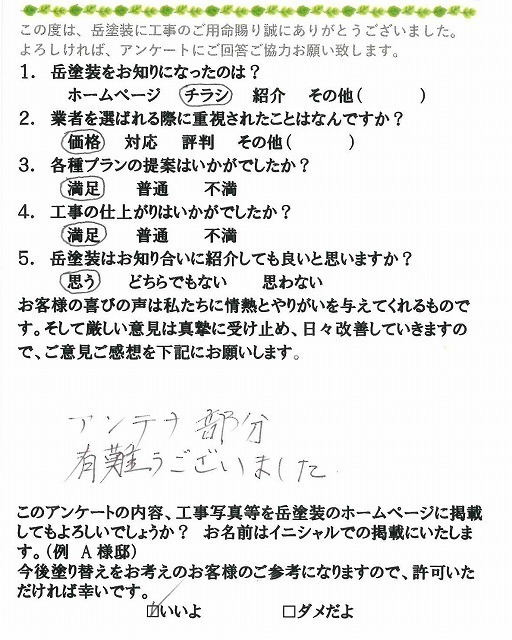 この度は、岳塗装に工事のご用命賜り誠にありがとうございました。
よろしければ、アンケートにご回答ご協力お願い致します。
1. 岳塗装をお知りになったのは？
ホームページ チラシ 紹介 その他( )
2. 業者を選ばれる際に重視されたことはなんですか？
価格 対応 評判 その他( )
3. 各種プランの提案はいかがでしたか？
満足 普通 不満
4. 工事の仕上がりはいかがでしたか？
満足 普通 不満
5. 岳塗装はお知り合いに紹介しても良いと思いますか？
思う どちらでもない 思わない
お客様の喜びの声は私たちに情熱とやりがいを与えてくれるもので
す。そして厳しい意見は真摯に受け止め、日々改善していきますの
で、ご意見ご感想を下記にお願いします。
アンテナ部分
有難うございました
このアンケートの内容、工事写真等を岳塗装のホームページに掲載
してもよろしいでしょうか？ お名前はイニシャルでの掲載にいたしま
す。(例 A様邸)
今後塗り替えをお考えのお客様のご参考になりますので、許可いた
だければ幸いです。
☑いいよ □ダメだよ